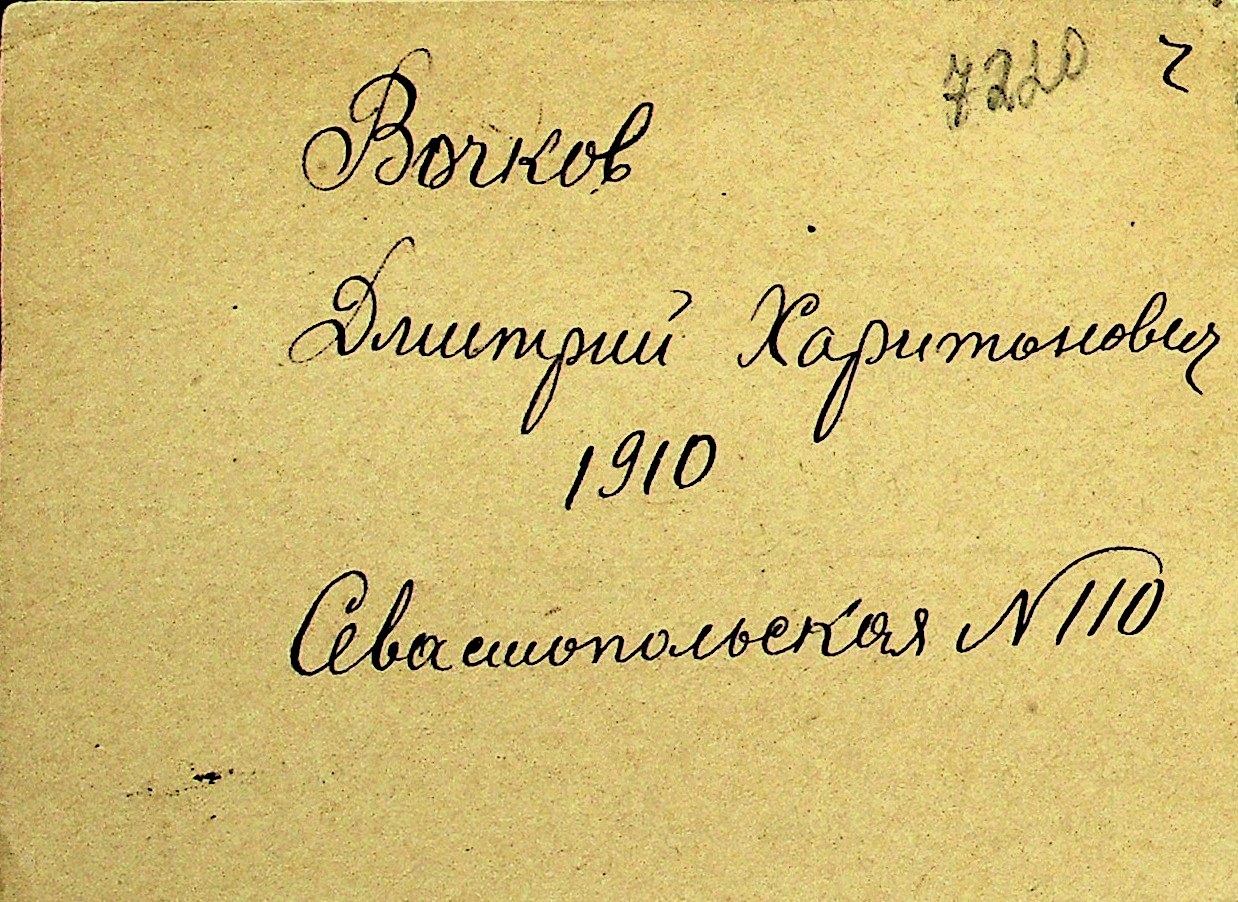 7220 ч
Вочков
Дмитрий Харитонович
1910
Севастопольская № 110